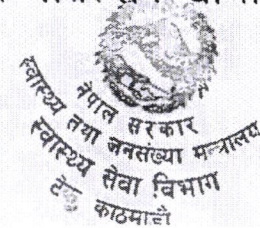 नेपाल सरकार
स्वास्थ्य तथा जनसंख्या मन्त्रालय
स्वास्थ्य सेवा विभाग
काठमाडौं